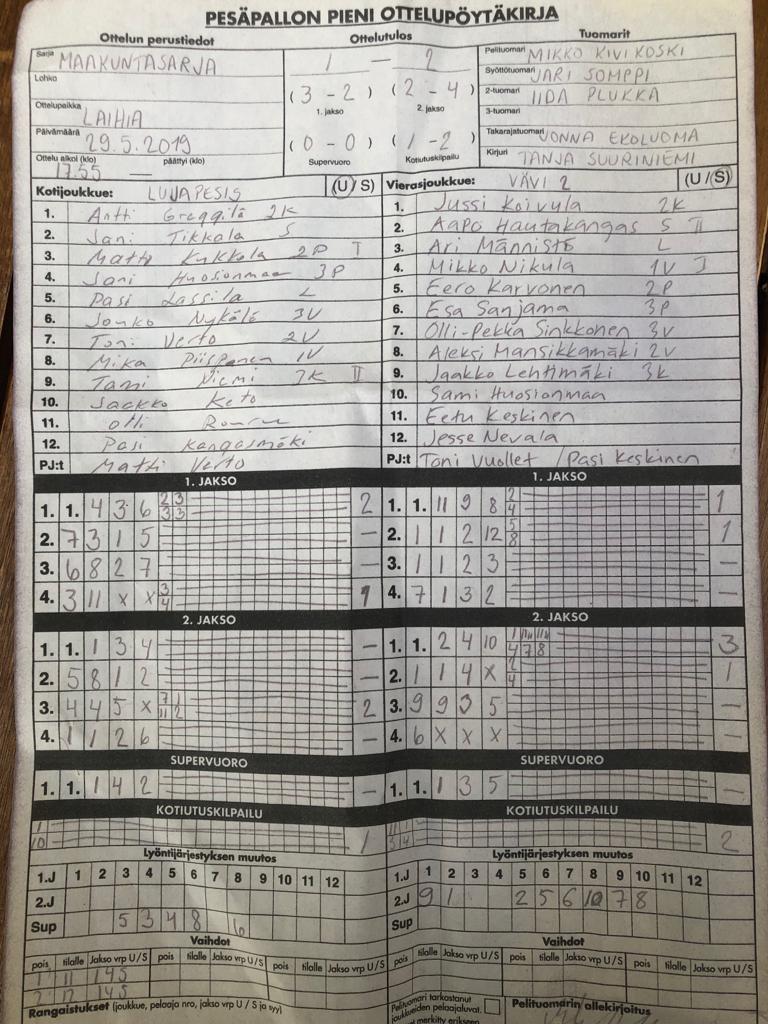 PESÄPALLON PIENI OTTELUPÖYTÄKIRJA
Ottelun perustiedot Ottelutulos Tuomarit
Sarja MAAKUNTASARJA 1 — 2 Pelituomari MIKKO KIVIKOSKI
Lohko Syöttötuomari JARI SOMPPI
(3 - 2) (2 - 4) 2-tuomari IIDA PLUKKA
Ottelupaikka LAIHIA 1. jakso 2. jakso 3-tuomari
Päivämäärä 29.5.2019 (0 - 0) (1 - 2) Takarajatuomari JONNA EKOLUOMA
Ottelu alkoi (klo) 17.55 päättyi (klo) — Supervuoro Kotiutuskilpailu Kirjuri TANJA SUURINIEMI
Kotijoukkue: LUJAPESIS (U / S) Vierasjoukkue: VÄVI 2 (U / S)
1. Antti 2K 1. Jussi Koivula 2K
2. Jani Tikkala S 2. Aapo Hautakangas S II
3. Matti Kukkola 2P I 3. Ari Männistö L
4. Jani Huosionmaa 3P 4. Mikko Nikula 1V I
5. Pasi Lassila L 5. Eero Karvonen 2P
6. Jouko Nykälä 3V 6. Esa Sanjama 3P
7. Toni Verto 2V 7. Olli-Pekka Sinkkonen 3V
8. Mika Piispanen 1V 8. Aleksi Mansikkamäki 2V
9. Tami Niemi 3K II 9. Jaakko Lehtimäki 3K
10. Jaakko Keto 10. Sami Huosionmaa
11. Olli 11. Eetu Keskinen
12. Pasi Kangasmäki 12. Jesse Nevala
PJ:t Matti Verto PJ:t Toni Vuollet / Pasi Keskinen
1. JAKSO 1. JAKSO
1. 1. 4 3 6 2 3 3 3 2 1. 1. 11 9 8 2 4 1
2. 7 3 1 5 2. 1 1 2 12 5 8 1
3. 6 8 2 7 3. 1 1 2 3 —
4. 3 11 x x 3 4 1 4. 7 1 3 2 —
2. JAKSO 2. JAKSO
1. 1. 1 3 4 — 1. 1. 2 4 10 4 7 8 3
2. 5 8 1 2 — 2. 1 1 4 x 2 4 1
3. 4 4 5 x 7 1 11 2 2 3. 9 9 3 5 —
4. 1 1 2 6 — 4. 6 x x x —
SUPERVUORO SUPERVUORO
1. 1. 1 4 2 — 1. 1. 1 3 5 —
KOTIUTUSKILPAILU KOTIUTUSKILPAILU
1 10 1 3 4 2
Lyöntijärjestyksen muutos Lyöntijärjestyksen muutos
1.J 1 2 3 4 5 6 7 8 9 10 11 12 1.J 1 2 3 4 5 6 7 8 9 10 11 12
2.J 2.J 9 1 2 5 6 10 7 8
Sup 5 3 4 8 6 Sup
Vaihdot Vaihdot
pois tilalle Jakso vrp U / S pois tilalle Jakso vrp U / S pois tilalle Jakso vrp U / S pois tilalle Jakso vrp U / S pois tilalle Jakso vrp U / S pois tilalle Jakso vrp U / S
1 11 1 4 S
2 12 1 4 S
Rangaistukset (joukkue, pelaaja nro, jakso vrp U / S ja syy) Pelituomari tarkastanut joukkueiden pelaajaluvat. Pelituomarin allekirjoitus